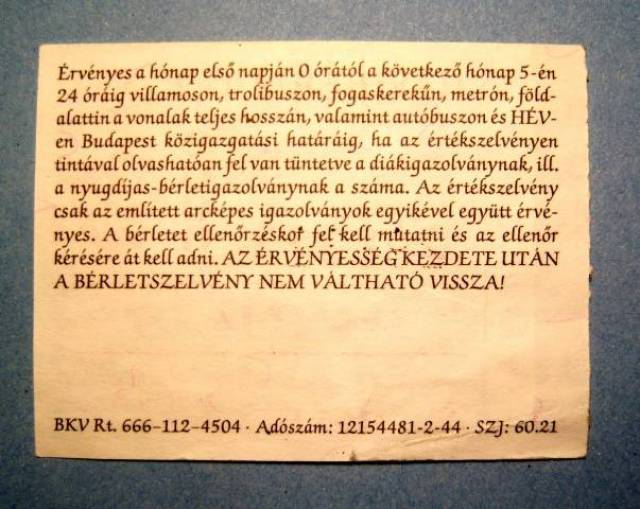 Érvényes a hónap első napján 0 órától a következő hónap 5-én
24 óráig villamoson, trolibuszon, fogaskerekűn, metrón, föld-
alattin a vonalak teljes hosszán, valamint autóbuszon és HÉV-
en Budapest közigazgatási határáig, ha az értékszelvényen
tintával olvashatóan fel van tüntetve a diákigazolványnak, ill.
a nyugdíjas-bérletigazolványnak a száma. Az értékszelvény
csak az említett arcképes igazolványok egyikével együtt érvé-
nyes. A bérletet ellenőrzéskor fel kell mutatni és az ellenőr
kérésére át kell adni. AZ ÉRVÉNYESSÉG KEZDETE UTÁN
A BÉRLETSZELVÉNY NEM VÁLTHATÓ VISSZA!
BKV Rt. 666-112-4504 · Adószám: 12154481-2-44 · SZJ: 60.21